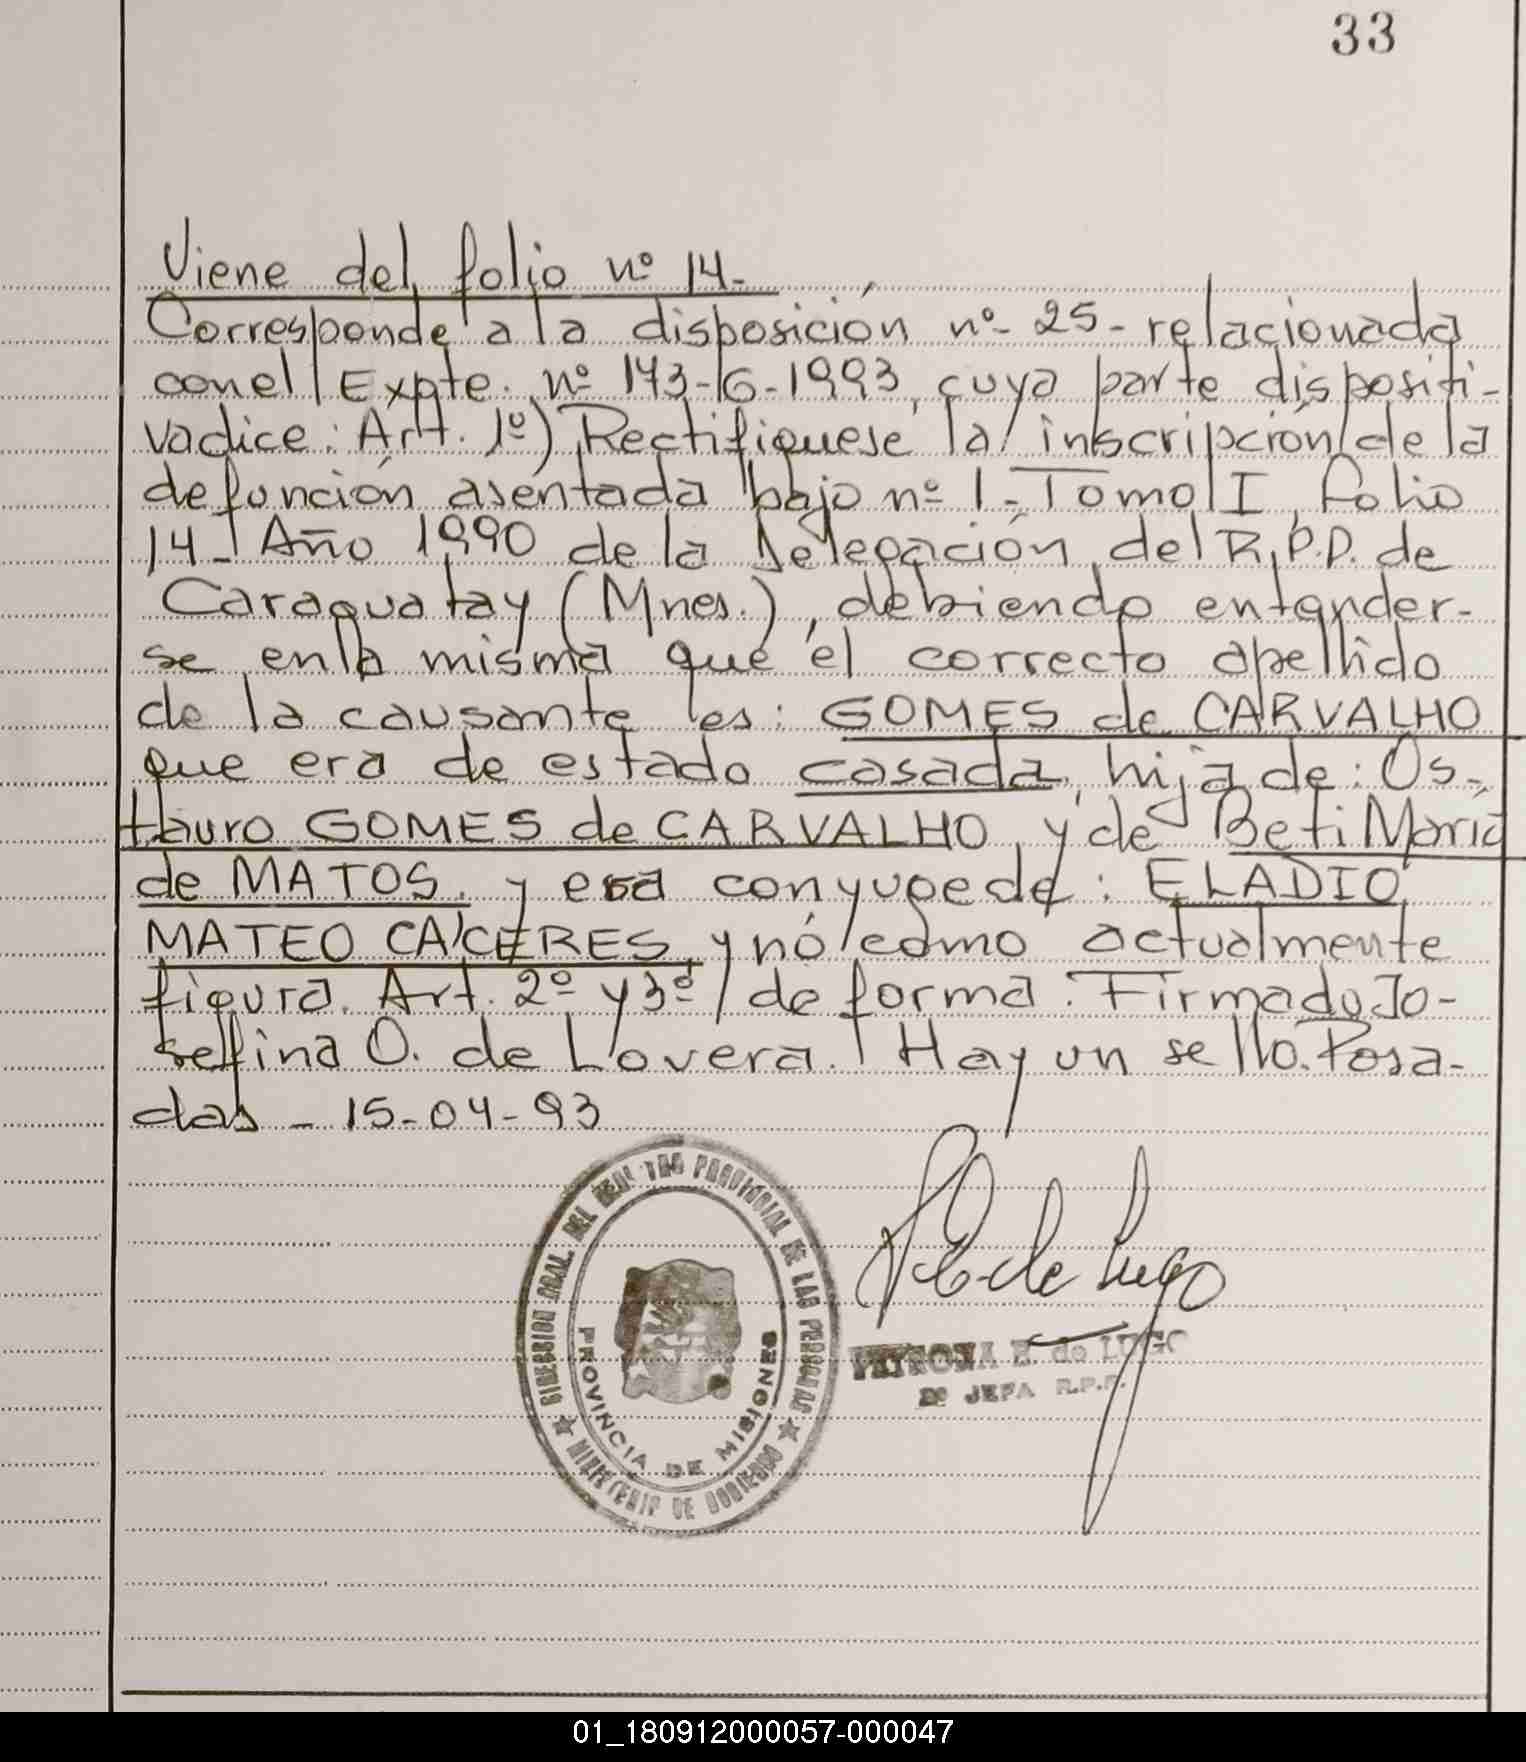 33
Viene del folio nº 14.
Corresponde a la disposición nº 25 - relacionada
con el Expte. nº 143-G-1993, cuya parte dispositi-
va dice: Art. 1º) Rectifiquese la inscripción de la
defunción asentada bajo nº 1 - Tomo I, Folio
14 - Año 1990 de la Delegación del R.P.P. de
Caraguatay (Mnes.), debiendo entender-
se en la misma que el correcto apellido
de la causante es: GOMES de CARVALHO
que era de estado casada, hija de: Os-
tauro GOMES de CARVALHO y de Beti María
de MATOS. y era conyuge de: ELADIO
MATEO CÁCERES, y nó como actualmente
figura. Art. 2º y 3º/ de forma. Firmado Jo-
sefina O. de Lovera. Hay un sello. Posa-
das - 15-04-93
DIRECCION GRAL. DEL REGISTRO PROVINCIAL DE LAS PERSONAS
PROVINCIA DE MISIONES
MINISTERIO DE GOBIERNO
PETRONA E. de LUGO
JEFA R.P.P.
01_180912000057-000047